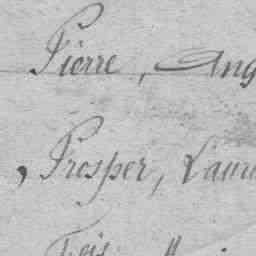 Pierre, Aug
, Prosper, Laur